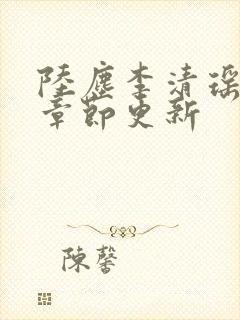 陸塵李清瑶
章節更新
陳馨